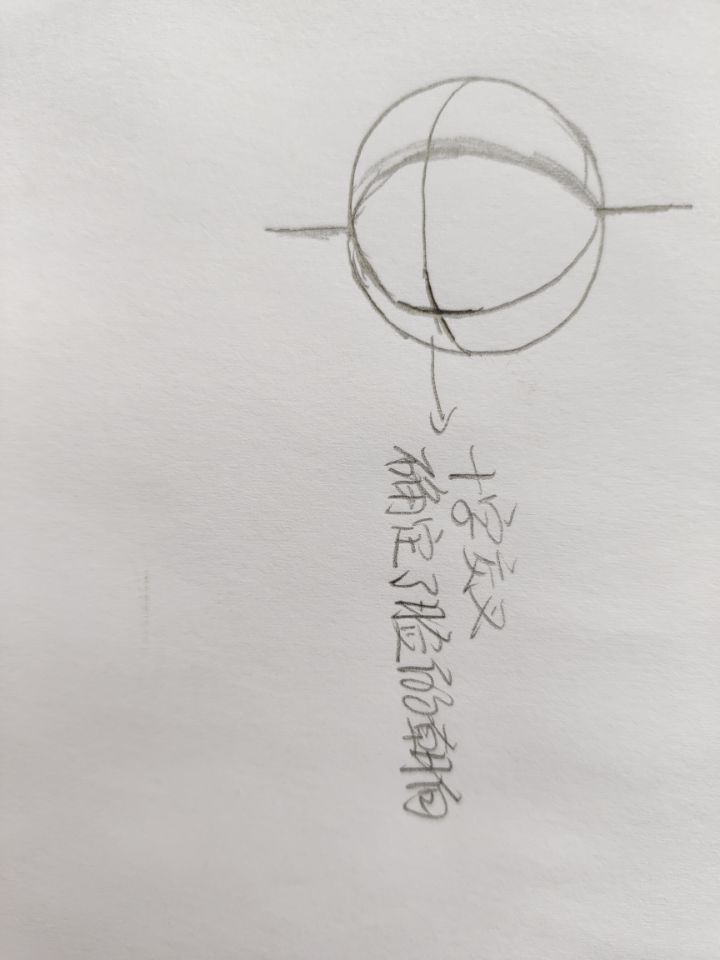 十字交叉
确定了脸的朝向